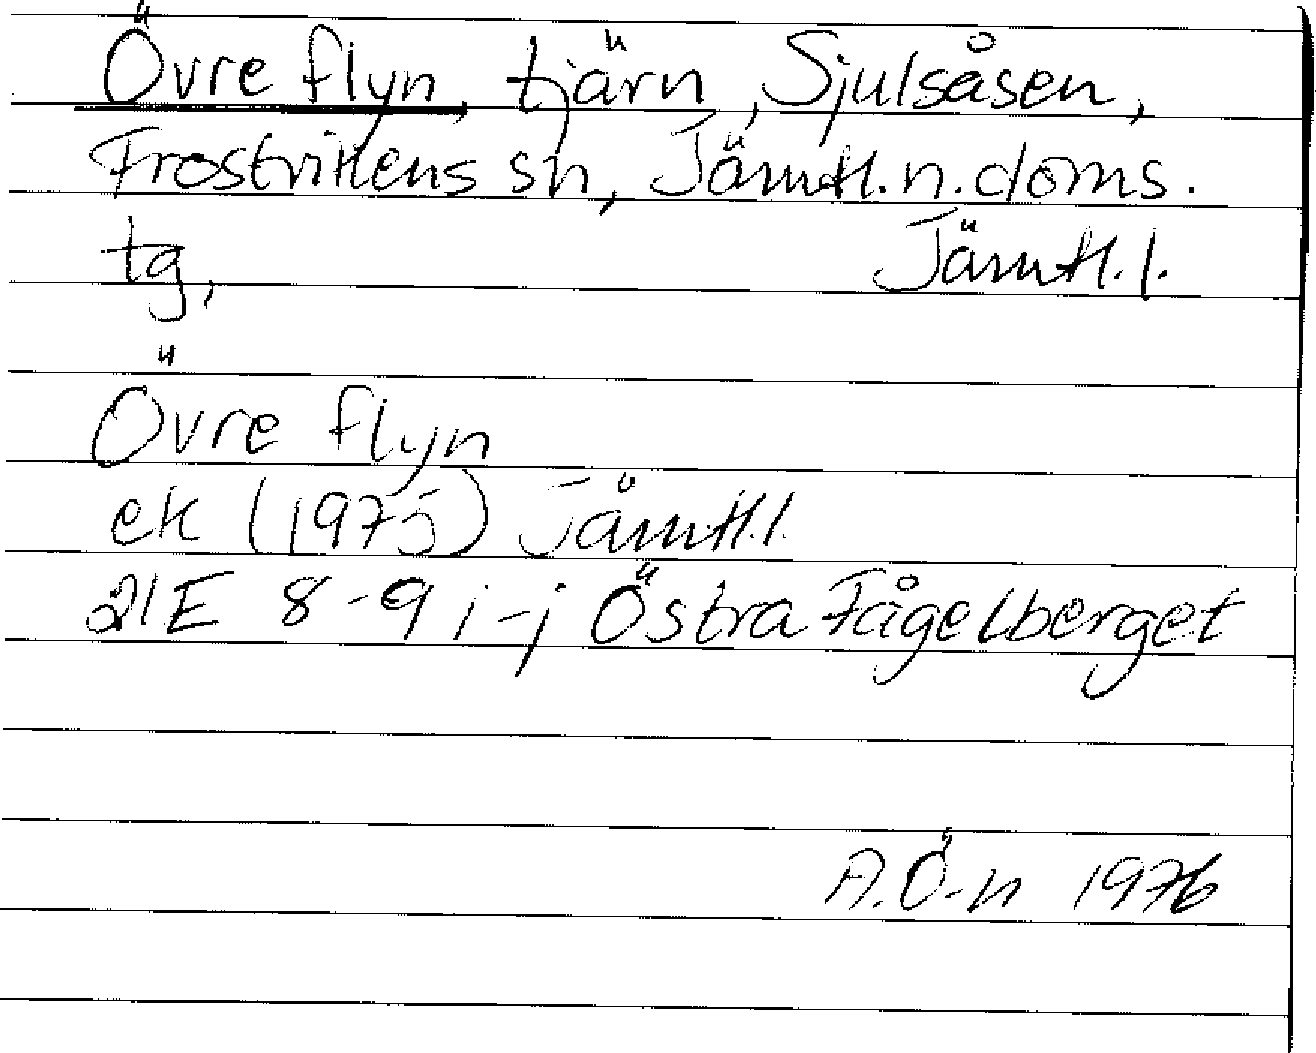 Övre flyn, tjärn, Sjulsåsen,
Frostvikens sn, Jämtl. n. doms.
tg, Jämtl. l.
Övre flyn
ek (1975) Jämtl. l.
21E 8-9 i-j Östra Fågelberget
A.Ö-n 1976